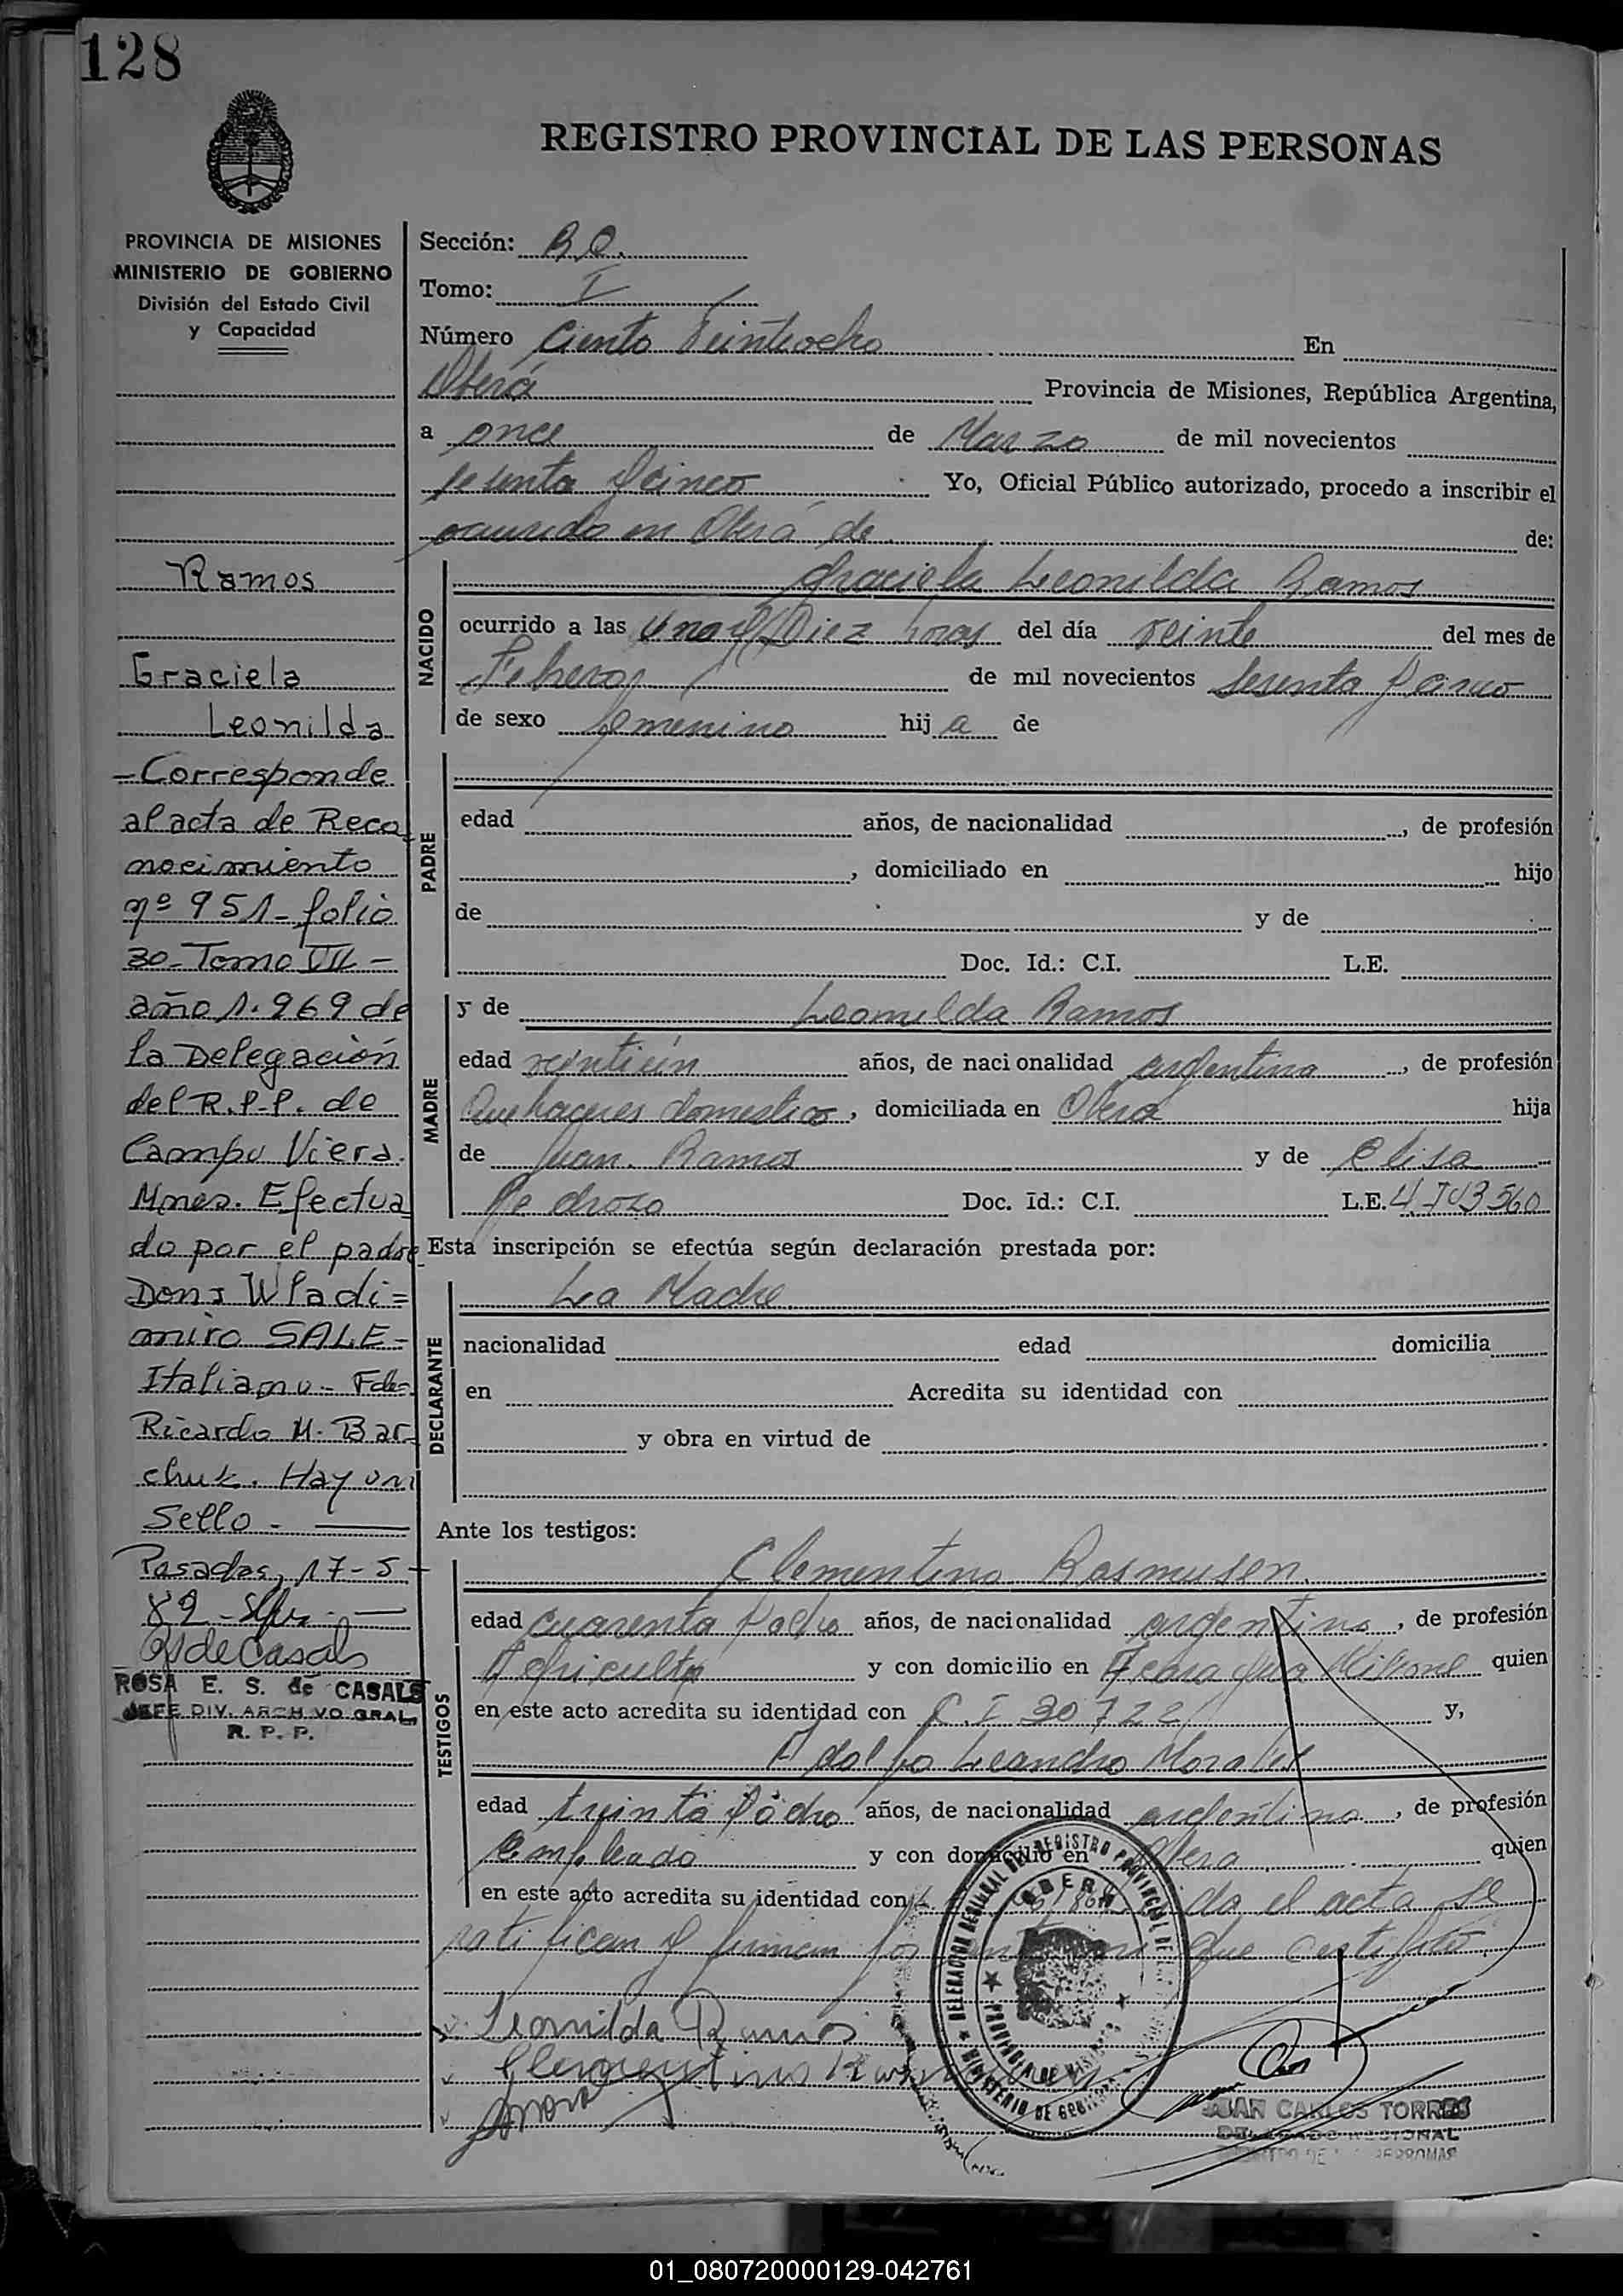 128
REGISTRO PROVINCIAL DE LAS PERSONAS
PROVINCIA DE MISIONES
MINISTERIO DE GOBIERNO
División del Estado Civil
y Capacidad
Ramos
Graciela
Leonilda
- Corresponde
al acta de Reco
nocimiento
nº 951 - folio
30 - Tomo VII -
año 1.969 de
la Delegación
del R.P.P. de
Campo Viera.
Mnes. Efectua
do por el padre
Don: Wladi=
miro SALE -
Italiano - Fdo
Ricardo M. Bar-
chuk. Hay un
Sello -
Posadas, 17-5-
89
ROSA E. S. de CASALS
JEFE DIV. ARCHIVO GRAL.
R. P. P.
Sección:
Tomo: I
Número Ciento Veintiocho En
Oberá Provincia de Misiones, República Argentina,
a once de Marzo de mil novecientos
sesenta y cinco Yo, Oficial Público autorizado, procedo a inscribir el
ocurrido en Oberá de de:
NACIDO
Graciela Leonilda Ramos
ocurrido a las una y Diez horas del día veinte del mes de
Febrero de mil novecientos sesenta y cinco
de sexo femenino hija de
PADRE
edad años, de nacionalidad , de profesión
, domiciliado en hijo
de y de
Doc. Id.: C.I. L.E.
MADRE
y de Leonilda Ramos
edad veintiún años, de nacionalidad argentina , de profesión
Quehaceres domestico , domiciliada en Oberá hija
de Juan Ramos y de Elisa
Pedrozo Doc. Id.: C.I. L.E. 4.743560
Esta inscripción se efectúa según declaración prestada por:
DECLARANTE
La Madre
nacionalidad edad domicilia
en Acredita su identidad con
y obra en virtud de
Ante los testigos:
TESTIGOS
Clementino Rasmusen
edad cuarenta y ocho años, de nacionalidad argentino , de profesión
Agricultor y con domicilio en quien
en este acto acredita su identidad con C.I 30722 y,
Adolfo Leandro Morales
edad treinta y ocho años, de nacionalidad argentino , de profesión
Empleado y con domicilio en Oberá quien
en este acto acredita su identidad con el acta se
ratifican y firman que certifico
Leonilda Ramos
Clementino
JUAN CARLOS TORRES
DELEGADO REGIONAL
01_080720000129-042761